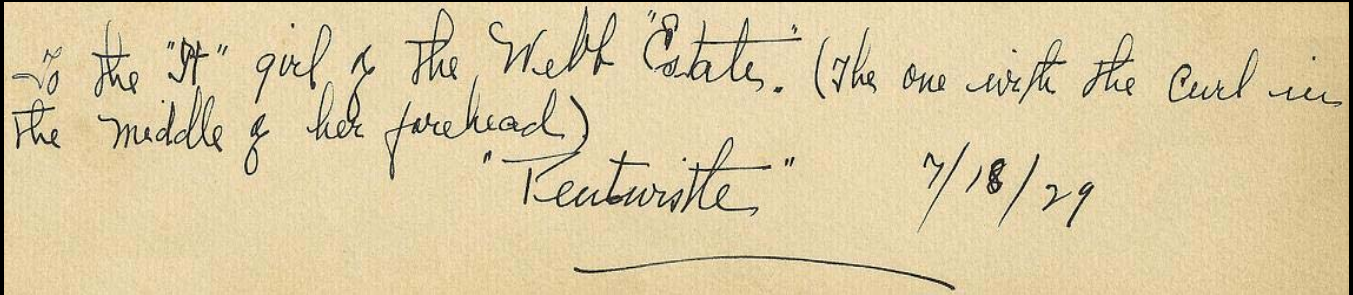 To the "It" girl of the Webb "Estate." (The one with the Curl in
the middle of her forehead)
"Pentwistle" 7/18/29